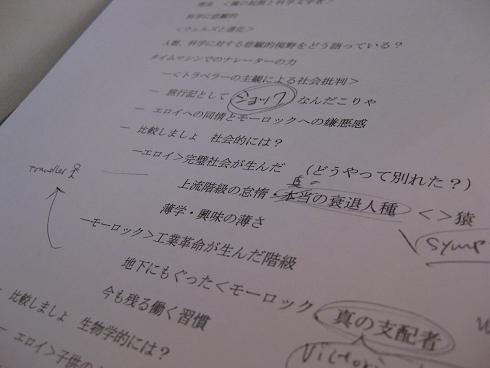 科学に悲観的
＜ウェルズと進化＞
人類、科学に対する悲観的視野をどう語っている？
タイムマシンでのナレーターの力
―＜トラベラーの主観による社会批判＞
― 旅行記として ショック なんだこりや
― エロイへの同情とモーロックへの嫌悪感
― 比較しましょ 社会的には？
―エロイ＞完璧社会が生んだ (どうやって別れた？)
Traveller
上流階級の怠惰、本当の衰退人種 ＜＞猿
薄学・興味の薄さ
Symp
―モーロック＞工業革命が生んだ階級
地下にもぐった＜モーロック、真の支配者
今も残る働く習慣
比較しましょ 生物学的には？
― エロイ＞子供の